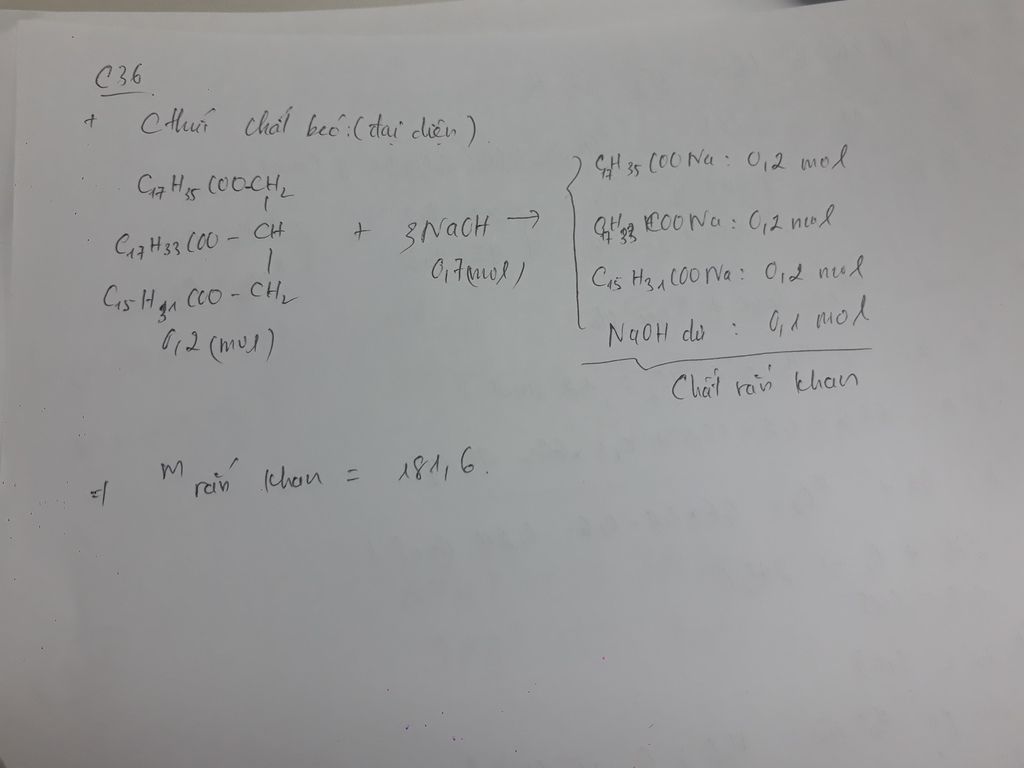 C36
+ Cthức chất béo: (đại diện)
C17H35COO-CH2
C17H33COO - CH + 3NaOH →
C15H31COO - CH2 0,7(mol)
0,2 (mol)
C17H35COONa : 0,2 mol
C17H33COONa : 0,2 mol
C15H31COONa : 0,2 mol
NaOH dư : 0,1 mol
Chất rắn khan
=> m rắn khan = 181,6.